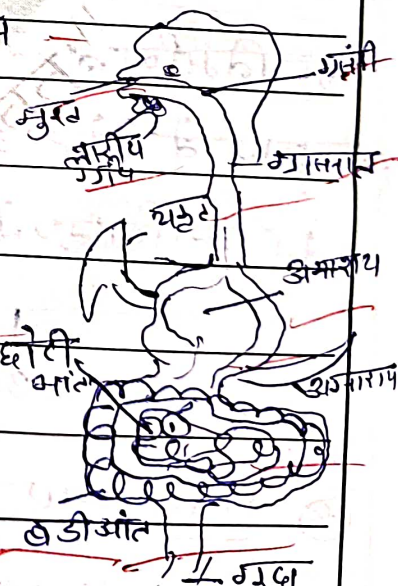 ग्रसनी
मुख
लारीय
ग्रंथि
ग्रासनाल
यकृत
अमाशय
छोटी
आंत
अग्नाशय
बडी आंत
गुदा